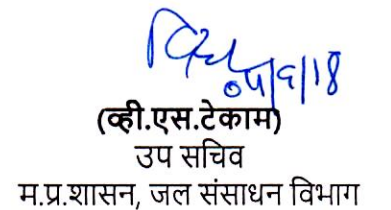 ०५/६/18
(व्ही.एस.टेकाम)
उप सचिव
म.प्र.शासन, जल संसाधन विभाग